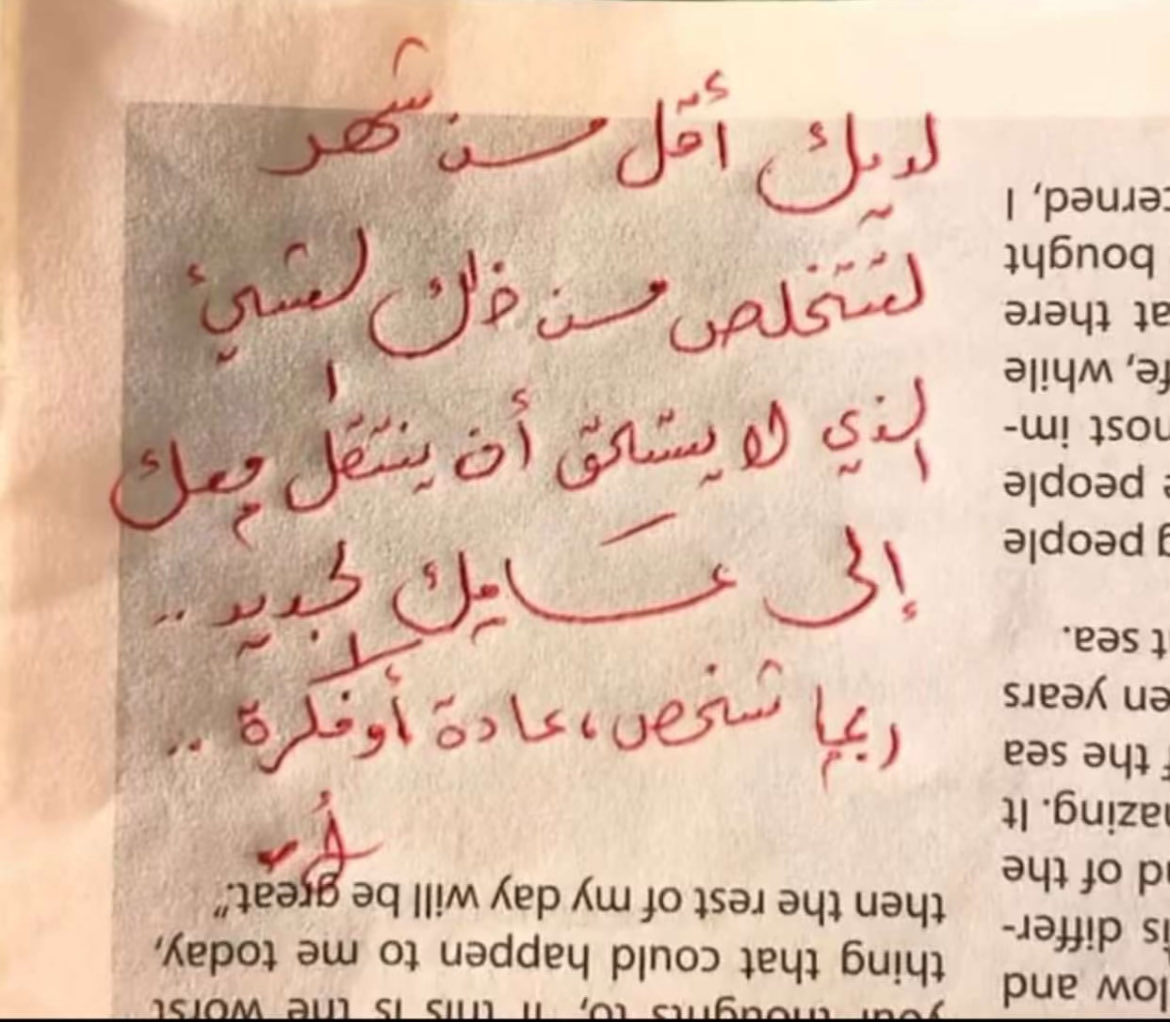 لديك أقل من شهر
لتتخلص من ذلك الشيئ
الذي لا يستحق أن ينتقل معك
إلى عامك الجديد ..
ربما شخص، عادة أو فكرة ..
your thoughts to, "If this is the worst
thing that could happen to me today,
then the rest of my day will be great."
low and
is differ-
d of the
mazing. It
f the sea
en years
t sea.
g people
e people
most im-
fe, while
at there
bought
cerned, I